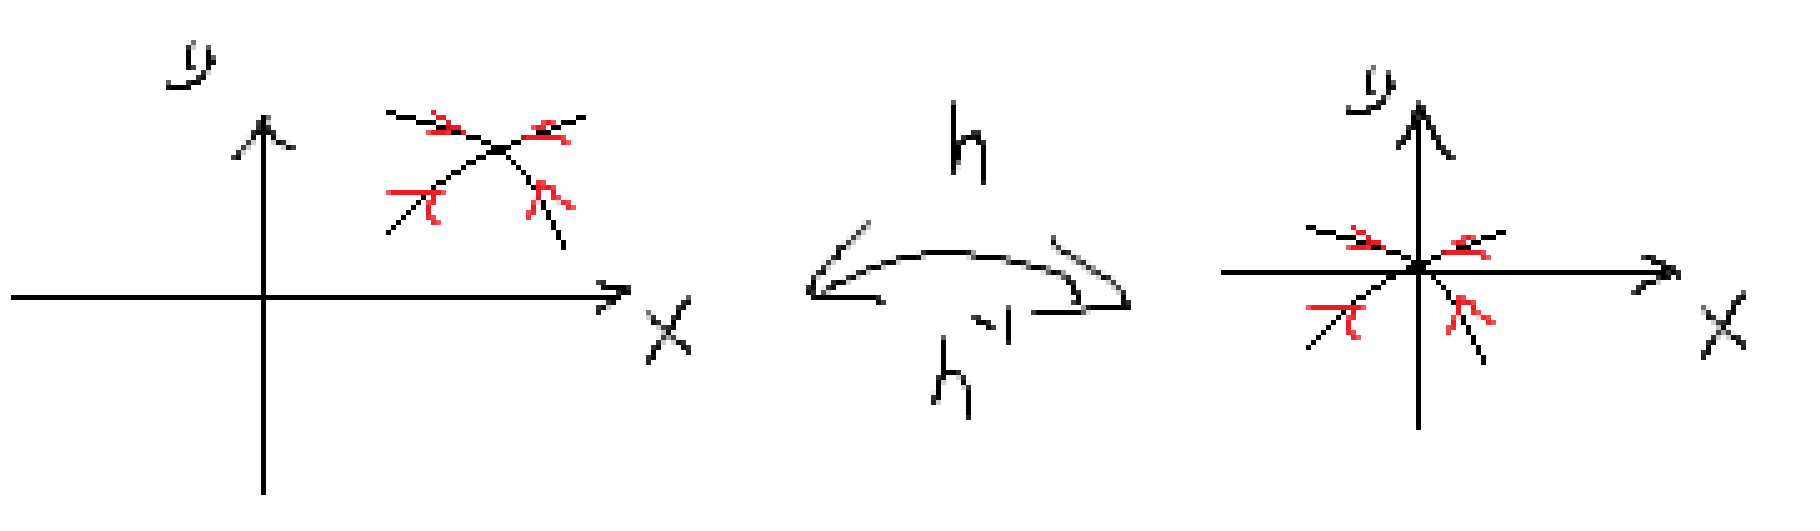 y
x
h
h⁻¹
y
x